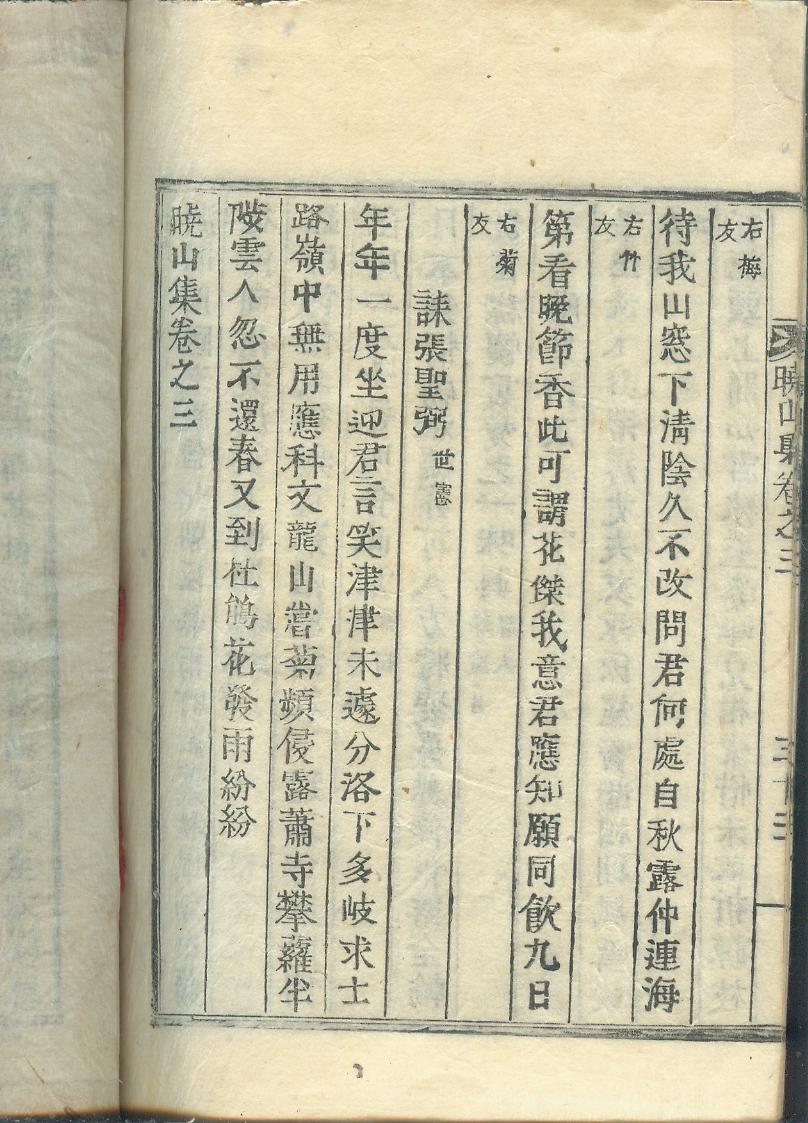 曉山集卷之三
右梅
友
待我山窓下清陰久不改問君何處自秋露仲連海
右竹
友
第看晩節香此可謂花傑我意君應知願同飲九日
右菊
友
誄張聖弼 世憲
年年一度坐迎君言笑津津未遽分洛下多岐求士
路嶺中無用應科文龍山嘗菊頻侵露蕭寺攀蘿半
陟雲人忽不還春又到杜鵑花發雨紛紛
曉山集卷之三